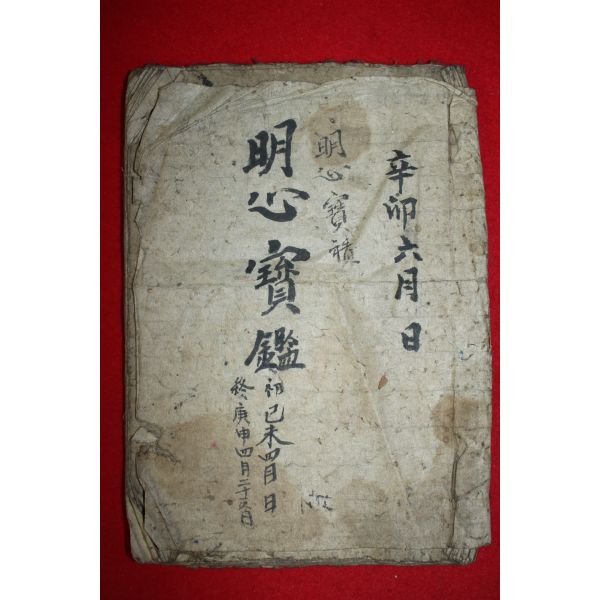 辛卯六月 日
明心寶
明心寶鑑
初己未四月 日
終庚申四月二十五日